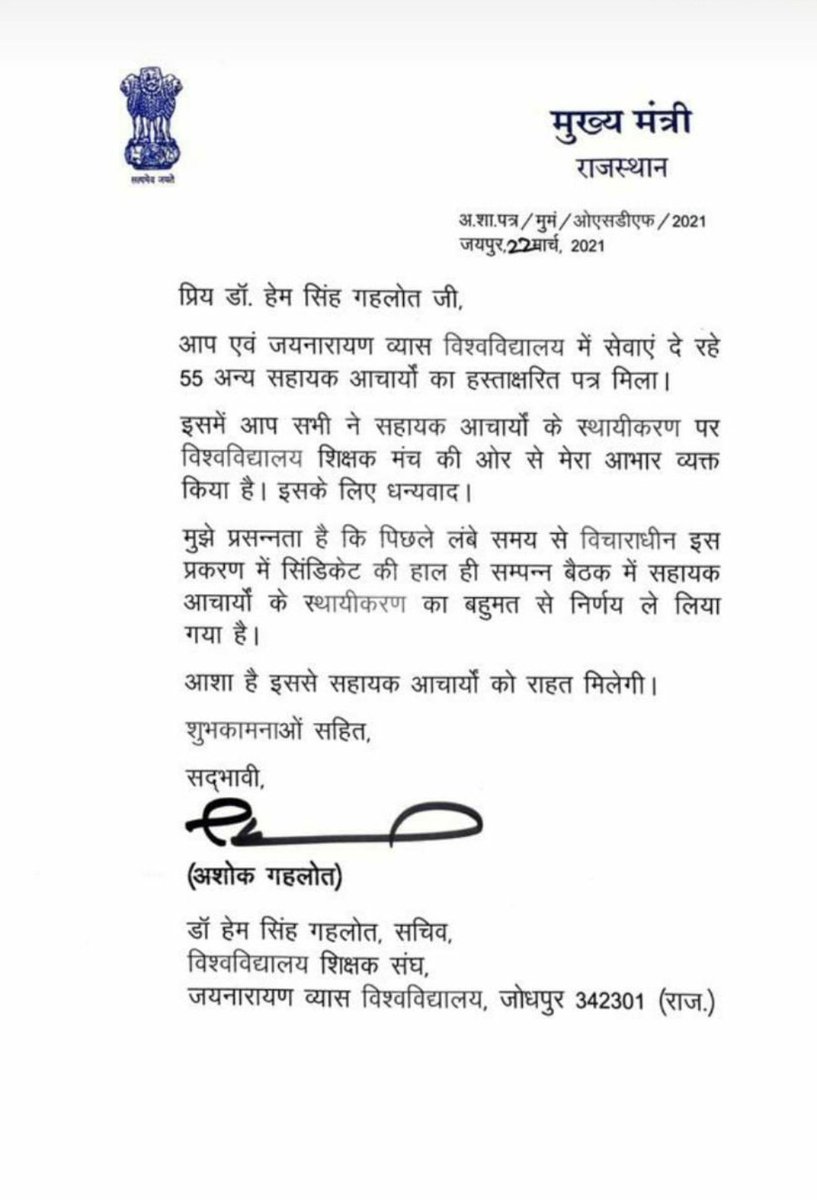 सत्यमेव जयते
मुख्य मंत्री
राजस्थान
अ.शा.पत्र/मुमं/ओएसडीएफ/2021
जयपुर,22मार्च, 2021
प्रिय डॉ. हेम सिंह गहलोत जी,
आप एवं जयनारायण व्यास विश्वविद्यालय में सेवाएं दे रहे
55 अन्य सहायक आचार्यों का हस्ताक्षरित पत्र मिला।
इसमें आप सभी ने सहायक आचार्यों के स्थायीकरण पर
विश्वविद्यालय शिक्षक मंच की ओर से मेरा आभार व्यक्त
किया है। इसके लिए धन्यवाद।
मुझे प्रसन्नता है कि पिछले लंबे समय से विचाराधीन इस
प्रकरण में सिंडिकेट की हाल ही सम्पन्न बैठक में सहायक
आचार्यों के स्थायीकरण का बहुमत से निर्णय ले लिया
गया है।
आशा है इससे सहायक आचार्यों को राहत मिलेगी।
शुभकामनाओं सहित,
सद्भावी,
(अशोक गहलोत)
डॉ हेम सिंह गहलोत, सचिव,
विश्वविद्यालय शिक्षक संघ,
जयनारायण व्यास विश्वविद्यालय, जोधपुर 342301 (राज.)